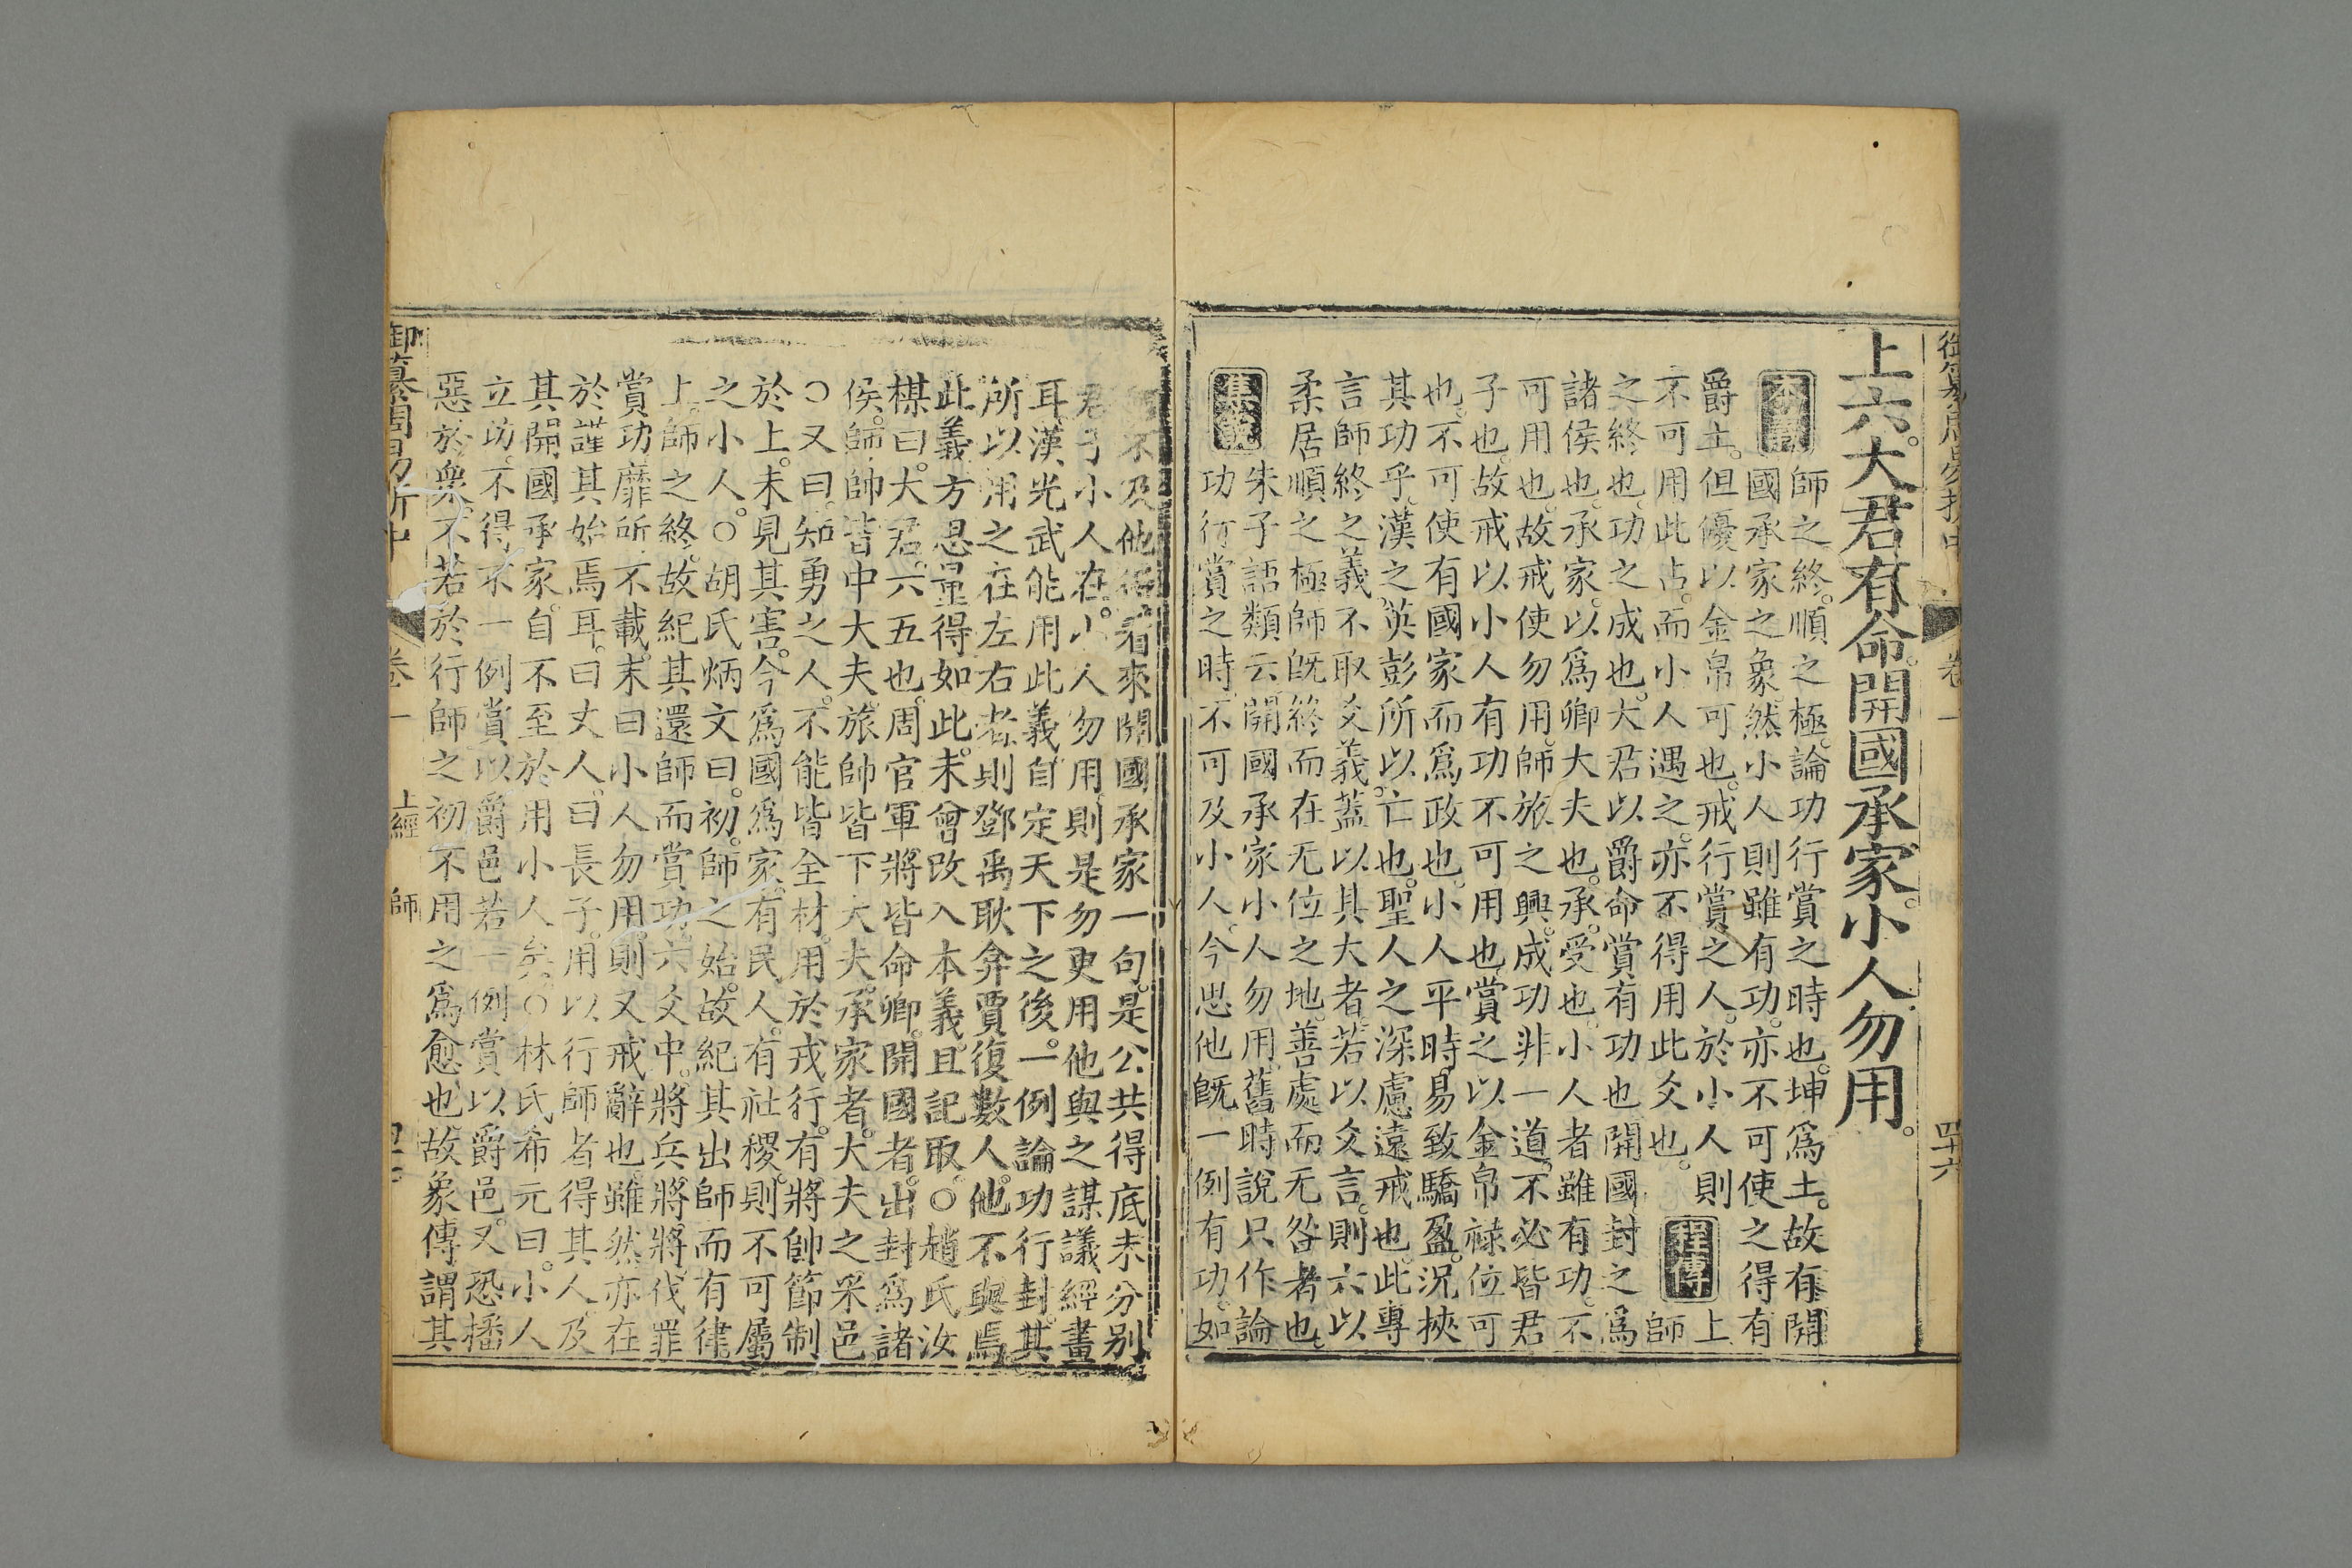 御纂周易折中 卷一 四十六
上六。大君有命。開國承家。小人勿用。
本義
師之終。順之極。論功行賞之時也。坤爲土。故有開
國承家之象。然小人則雖有功。亦不可使之得有
爵土。但優以金帛可也。戒行賞之人。於小人則
不可用此占。而小人遇之。亦不得用此爻也。
程傳
上
師
之終也。功之成也。大君以爵命賞有功也開國封之爲
諸侯也。承家。以爲卿大夫也。承。受也。小人者雖有功。不
可用也。故戒使勿用。師旅之興。成功非一道。不必皆君
子也。故戒以小人有功不可用也。賞之以金帛祿位可
也。不可使有國家而爲政也。小人平時。易致驕盈。況挾
其功乎。漢之英彭所以亡也。聖人之深慮遠戒也。此專
言師終之義。不取爻義。蓋以其大者。若以爻言。則六以
柔居順之極師旣終而在无位之地。善處而无咎者也。
集說
朱子語類云。開國承家小人勿用。舊時說只作論
功行賞之時。不可及小人。今思他旣一例有功。如
不及他得看來開國承家一句。是公共得底未分別
君子小人在。小人勿用。則是勿更用他與之謀議經畫
耳。漢光武能用此義。自定天下之後。一例論功行封。其
所以用之在左右者。則鄧禹耿弇賈復數人。他不與焉。
此義方思量得如此。未曾改入本義。且記取。○趙氏汝
楳曰。大君。六五也。周官軍將皆命卿。開國者。出封爲諸
侯。師帥皆中大夫。旅帥皆下大夫。承家者。大夫之采邑
○又曰。知勇之人。不能皆全材。用於戎行。有將帥節制
於上。未見其害。今爲國爲家。有民人。有社稷。則不可屬
之小人。○胡氏炳文曰。初。師之始。故紀其出師而有律
上。師之終。故紀其還師而賞功。六爻中。將兵將將。伐罪
賞功。靡所不載。末曰小人勿用。則又戒辭也。雖然亦在
於謹其始焉耳。曰丈人。曰長子。用以行師者得其人。及
其開國承家。自不至於用小人矣。○林氏希元曰。小人
立功。不得不一例賞以爵邑若一例賞以爵邑。又恐播
惡於衆。不若於行師之初。不用之爲愈也。故象傳謂其
御纂周易折中 卷一 上經 師